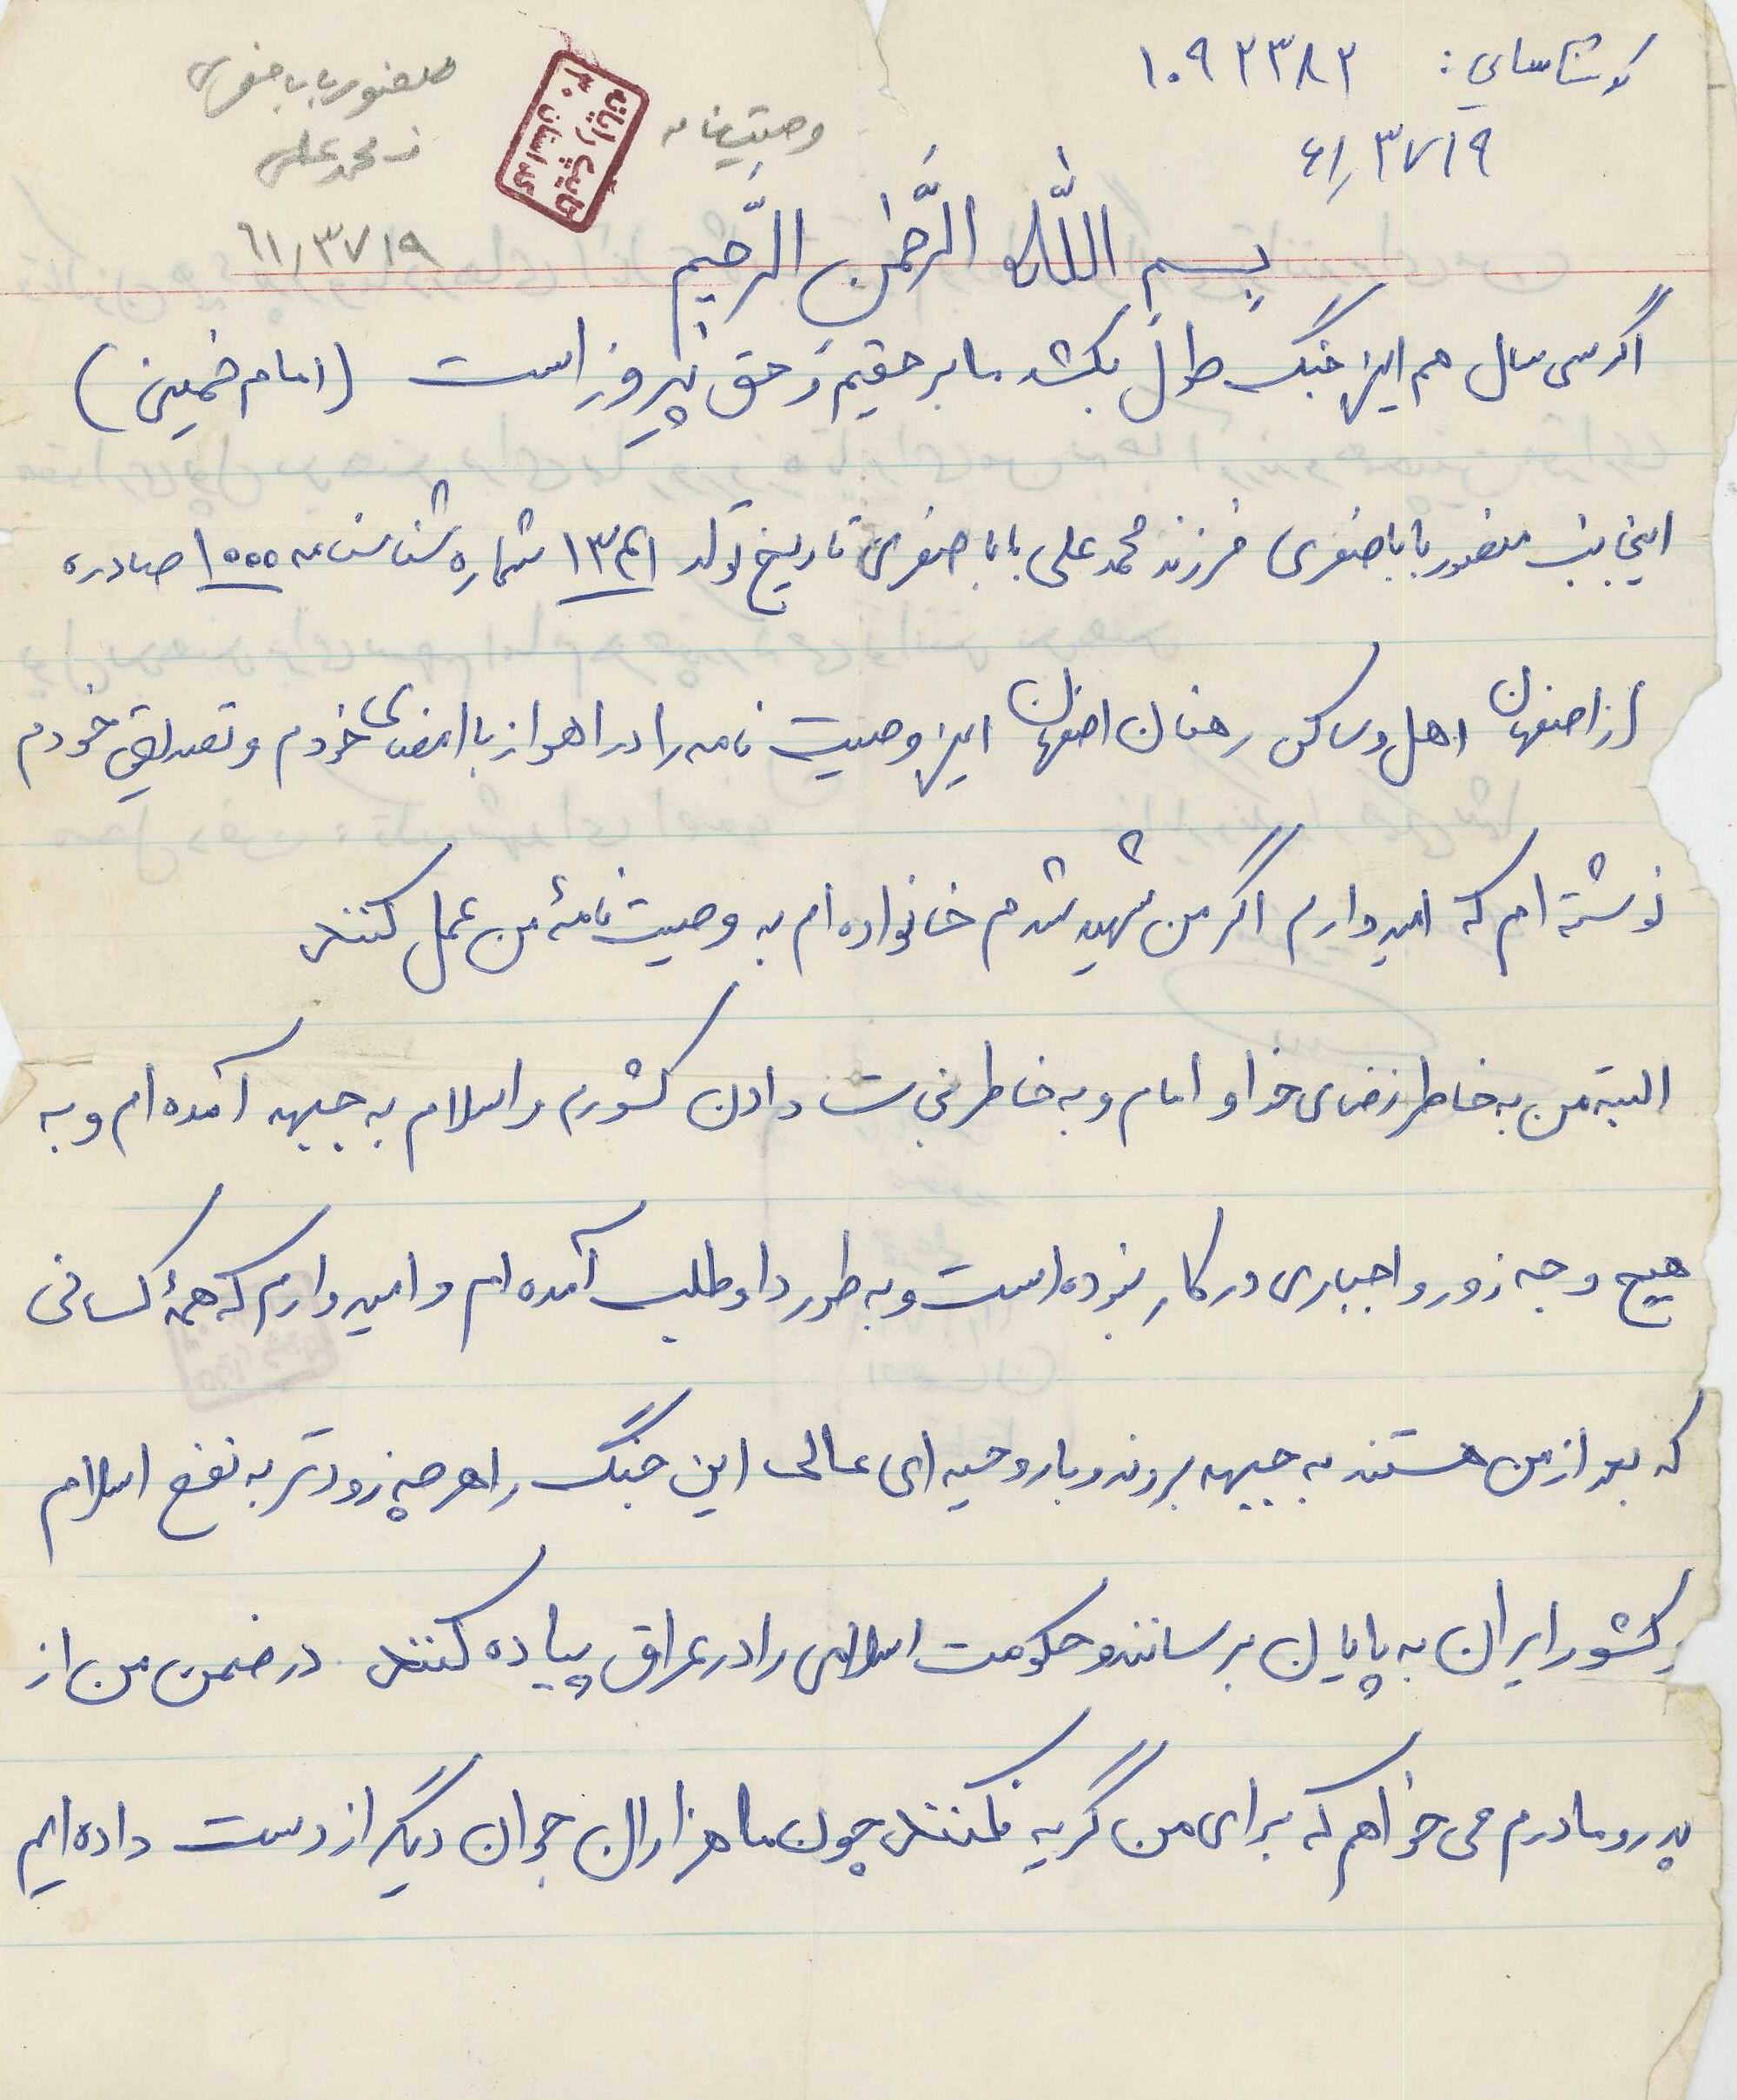 کد شناسایی: ۱۰۹۲۳۸۲
۶۱٫۳۷۱۹
وصیتنامه
تایپ رایانه
کد استان ۳۰
منصور باباصفری
ف محمدعلی
۶۱٫۳۷۱۹
بسم الله الرَّحمٰن الرَّحیم
اگر سی سال هم این جنگ طول بکشد ما بر حقیم و حق پیروز است (امام خمینی)
اینجانب منصور باباصفری فرزند محمدعلی باباصفری تاریخ تولد ۱۳۴۱ شماره شناسنامه ۱۰۰۰ صادره
از اصفهان اهل و ساکن رهنان اصفهان این وصیت نامه را در اهواز با امضای خودم و تصدیق خودم
نوشته ام که امیدوارم اگر من شهید شدم خانواده ام به وصیت نامهٔ من عمل کنند
البته من به خاطر رضای خدا و امام و به خاطر نجات دادن کشورم و اسلام به جبهه آمده ام و به
هیچ وجه زور و اجباری در کار نبوده است و به طور داوطلب آمده ام و امیدوارم که همهٔ کسانی
که بعد از من هستند به جبهه بروند و با روحیه ای عالی این جنگ را هر چه زودتر به نفع اسلام
کشور ایران به پایان برسانند و حکومت اسلامی را در عراق پیاده کنند. در ضمن من از
پدر و مادرم می خواهم که برای من گریه نکنند چون ما هزاران جوان دیگر از دست داده ایم